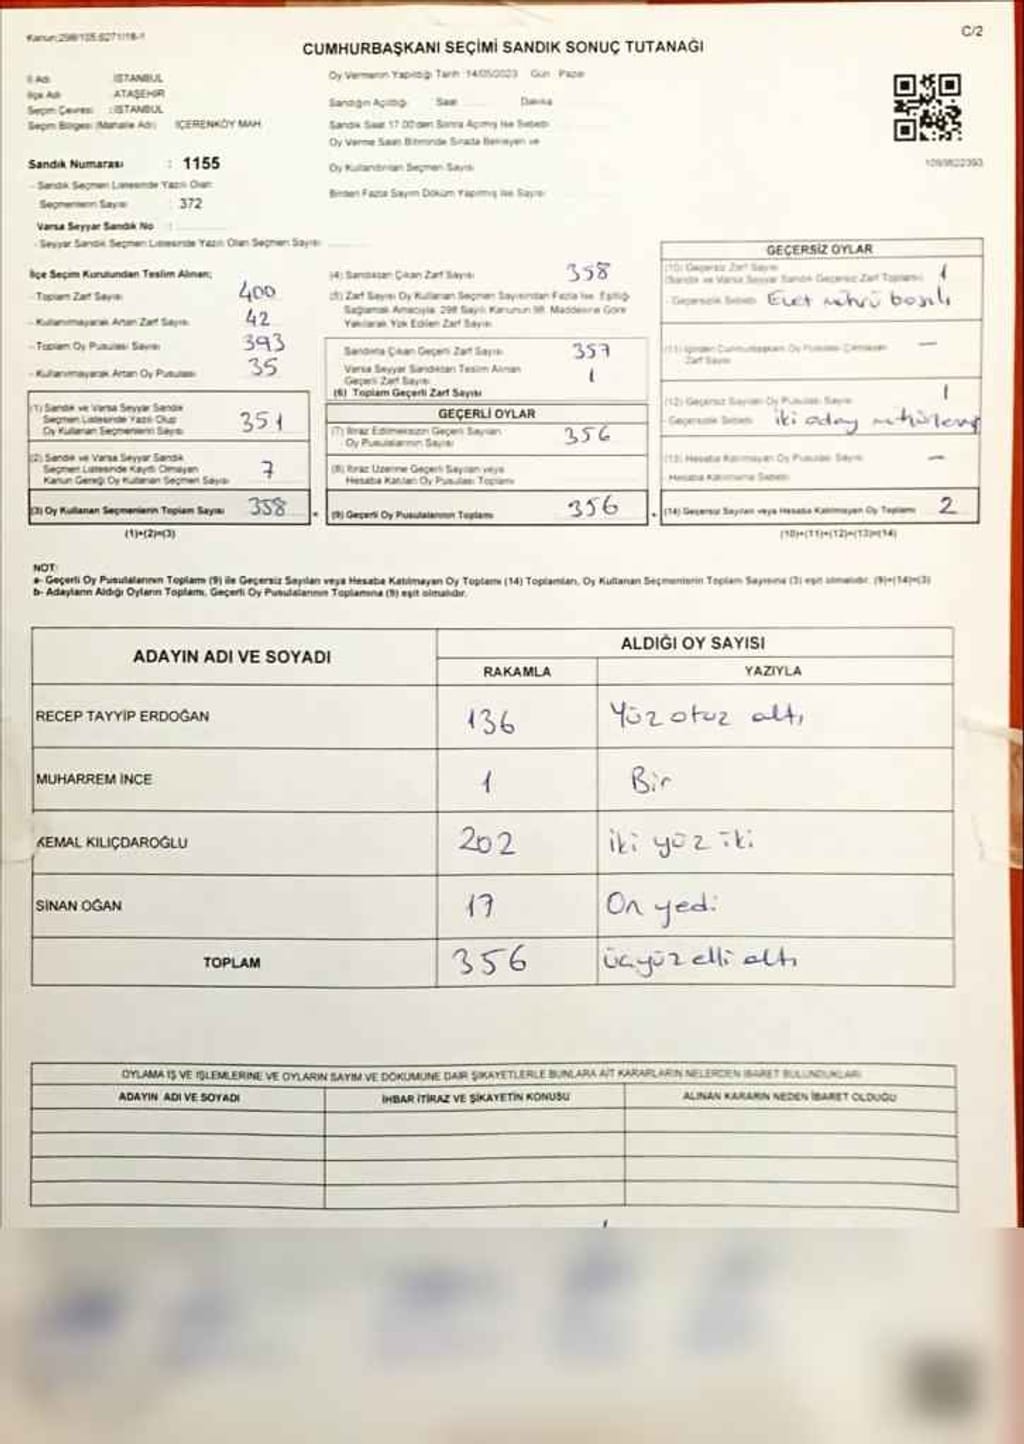 Kanun:298/105.6271/18-1
C/2
CUMHURBAŞKANI SEÇİMİ SANDIK SONUÇ TUTANAĞI
İl Adı : İSTANBUL
İlçe Adı : ATAŞEHİR
Seçim Çevresi : İSTANBUL
Seçim Bölgesi (Mahalle Adı) : İÇERENKÖY MAH.
Sandık Numarası : 1155
- Sandık Seçmen Listesinde Yazılı Olan
Seçmenlerin Sayısı : 372
Varsa Seyyar Sandık No :
- Seyyar Sandık Seçmen Listesinde Yazılı Olan Seçmen Sayısı
Oy Vermenin Yapıldığı Tarih :14/05/2023 Gün : Pazar
Sandığın Açıldığı Saat Dakika
Sandık Saat 17.00'den Sonra Açılmış İse Sebebi
Oy Verme Saati Bitiminde Sırada Bekleyen ve
Oy Kullandırılan Seçmen Sayısı
Birden Fazla Sayım Döküm Yapılmış İse Sayısı
1093822393
İlçe Seçim Kurulundan Teslim Alınan;
- Toplam Zarf Sayısı 400
- Kullanılmayarak Artan Zarf Sayısı 42
- Toplam Oy Pusulası Sayısı 393
- Kullanılmayarak Artan Oy Pusulası 35
(1) Sandık ve Varsa Seyyar Sandık
Seçmen Listesinde Yazılı Olup
Oy Kullanan Seçmenlerin Sayısı 351
(2) Sandık ve Varsa Seyyar Sandık
Seçmen Listesinde Kayıtlı Olmayan
Kanun Gereği Oy Kullanan Seçmen Sayısı 7
(3) Oy Kullanan Seçmenlerin Toplam Sayısı 358
(1)+(2)=(3)
(4) Sandıktan Çıkan Zarf Sayısı 358
(5) Zarf Sayısı Oy Kullanan Seçmen Sayısından Fazla İse, Eşitliği
Sağlamak Amacıyla, 298 Sayılı Kanunun 98. Maddesine Göre
Yakılarak Yok Edilen Zarf Sayısı
Sandıkta Çıkan Geçerli Zarf Sayısı 357
Varsa Seyyar Sandıktan Teslim Alınan
Geçerli Zarf Sayısı 1
(6) Toplam Geçerli Zarf Sayısı
GEÇERLİ OYLAR
(7) İtiraz Edilmeksizin Geçerli Sayılan
Oy Pusulalarının Sayısı 356
(8) İtiraz Üzerine Geçerli Sayılan veya
Hesaba Katılan Oy Pusulası Toplamı
(9) Geçerli Oy Pusulalarının Toplamı 356
GEÇERSİZ OYLAR
(10) Geçersiz Zarf Sayısı
(Sandık ve Varsa Seyyar Sandık Geçersiz Zarf Toplamı) 1
- Geçersizlik Sebebi Evet mührü basılı
(11) İçinden Cumhurbaşkanı Oy Pusulası Çıkmayan
Zarf Sayısı —
(12) Geçersiz Sayılan Oy Pusulası Sayısı 1
- Geçersizlik Sebebi iki aday
(13) Hesaba Katılmayan Oy Pusulası Sayısı —
- Hesaba Katılmama Sebebi
(14) Geçersiz Sayılan veya Hesaba Katılmayan Oy Toplamı 2
(10)+(11)+(12)+(13)=(14)
NOT:
a- Geçerli Oy Pusulalarının Toplamı (9) ile Geçersiz Sayılan veya Hesaba Katılmayan Oy Toplamı (14) Toplamları, Oy Kullanan Seçmenlerin Toplam Sayısına (3) eşit olmalıdır. (9)+(14)=(3)
b- Adayların Aldığı Oyların Toplamı, Geçerli Oy Pusulalarının Toplamına (9) eşit olmalıdır.
ADAYIN ADI VE SOYADI ALDIĞI OY SAYISI
RAKAMLA YAZIYLA
RECEP TAYYİP ERDOĞAN 136 Yüz otuz altı
MUHARREM İNCE 1 Bir
KEMAL KILIÇDAROĞLU 202 iki yüz iki
SİNAN OĞAN 17 On yedi
TOPLAM 356 üçyüz elli altı
OYLAMA İŞ VE İŞLEMLERİNE VE OYLARIN SAYIM VE DÖKÜMÜNE DAİR ŞİKAYETLERLE BUNLARA AİT KARARLARIN NELERDEN İBARET BULUNDUKLARI
ADAYIN ADI VE SOYADI İHBAR İTİRAZ VE ŞİKAYETİN KONUSU ALINAN KARARIN NEDEN İBARET OLDUĞU